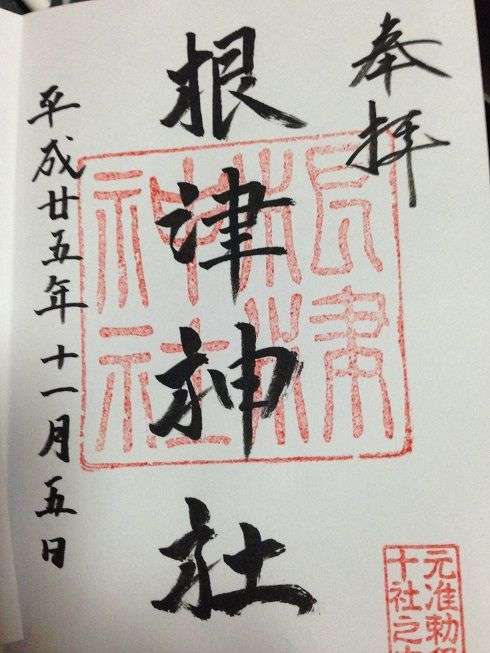 奉拝
根津神社
平成廿五年十一月五日
根津
神社
元准勅
十社之